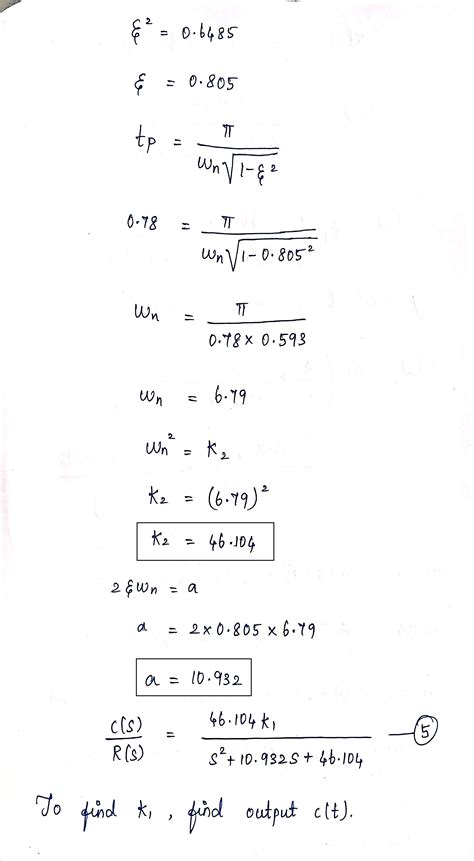 ξ² = 0.6485
ξ = 0.805
tp = π / (ωn√(1-ξ²))
0.78 = π / (ωn√(1-0.805²))
ωn = π / (0.78 × 0.593)
ωn = 6.79
ωn² = K₂
K₂ = (6.79)²
K₂ = 46.104
2ξωn = a
a = 2×0.805×6.79
a = 10.932
C(S)/R(S) = 46.104K₁ / (S²+10.932S+46.104) — ⑤
To find K₁, find output c(t).